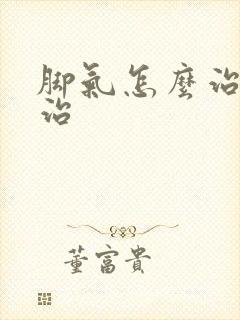 脚氣怎麼治
治
董富貴